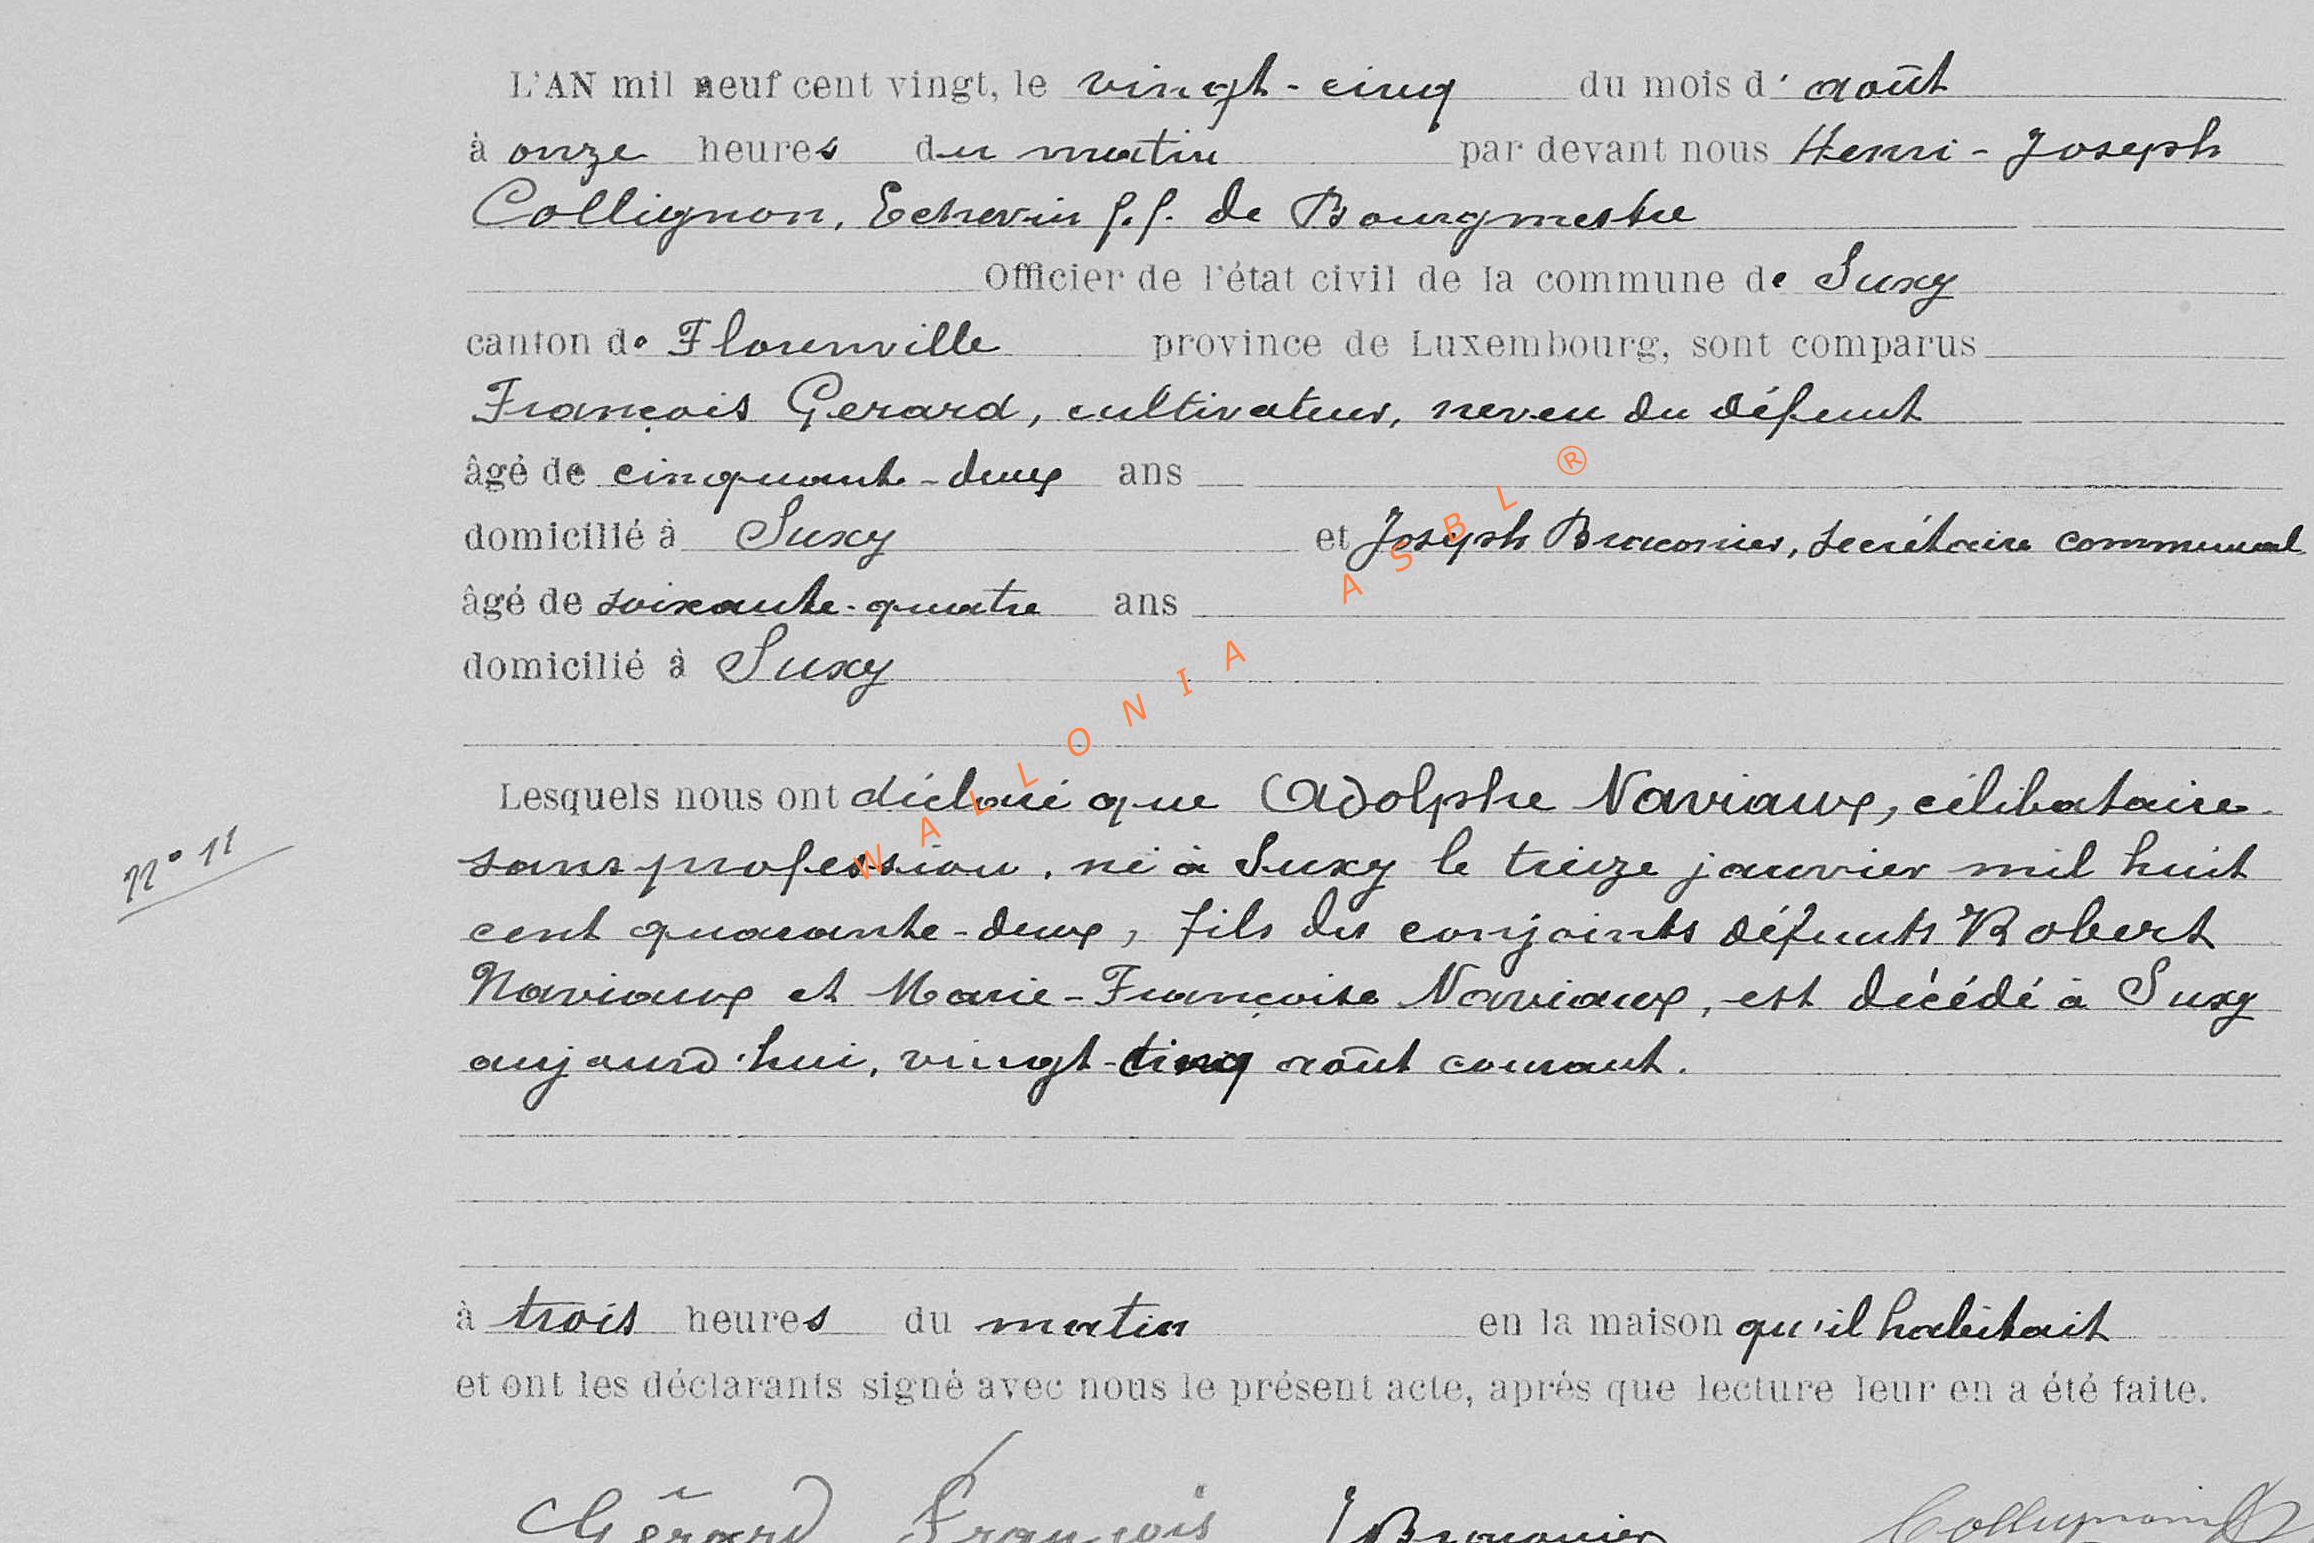 L'AN mil neuf cent vingt, le vingt-cinq du mois d'août
à onze heures du matin par devant nous Henri-Joseph
Collignon, Echevin f.f. de Bourgmestre
Officier de l'état civil de la commune de Suxy
canton de Florenville province de Luxembourg, sont comparus
François Gerard, cultivateur, neveu du défunt
âgé de cinquante-deux ans
domicilié à Suxy et Joseph Braconier, secrétaire communal
âgé de soixante-quatre ans
domicilié à Suxy
Lesquels nous ont déclaré que Adolphe Naviaux, célibataire
n° 11
sans profession, né à Suxy le treize janvier mil huit
cent quarante-deux, fils des conjoints défunts Robert
Naviaux et Marie-Françoise Naviaux, est décédé à Suxy
aujourd'hui, vingt-cinq août courant.
à trois heures du matin en la maison qu'il habitait
et ont les déclarants signé avec nous le présent acte, après que lecture leur en a été faite.
Gérard François J Braconier Collignon
WALLONIA ASBL ®